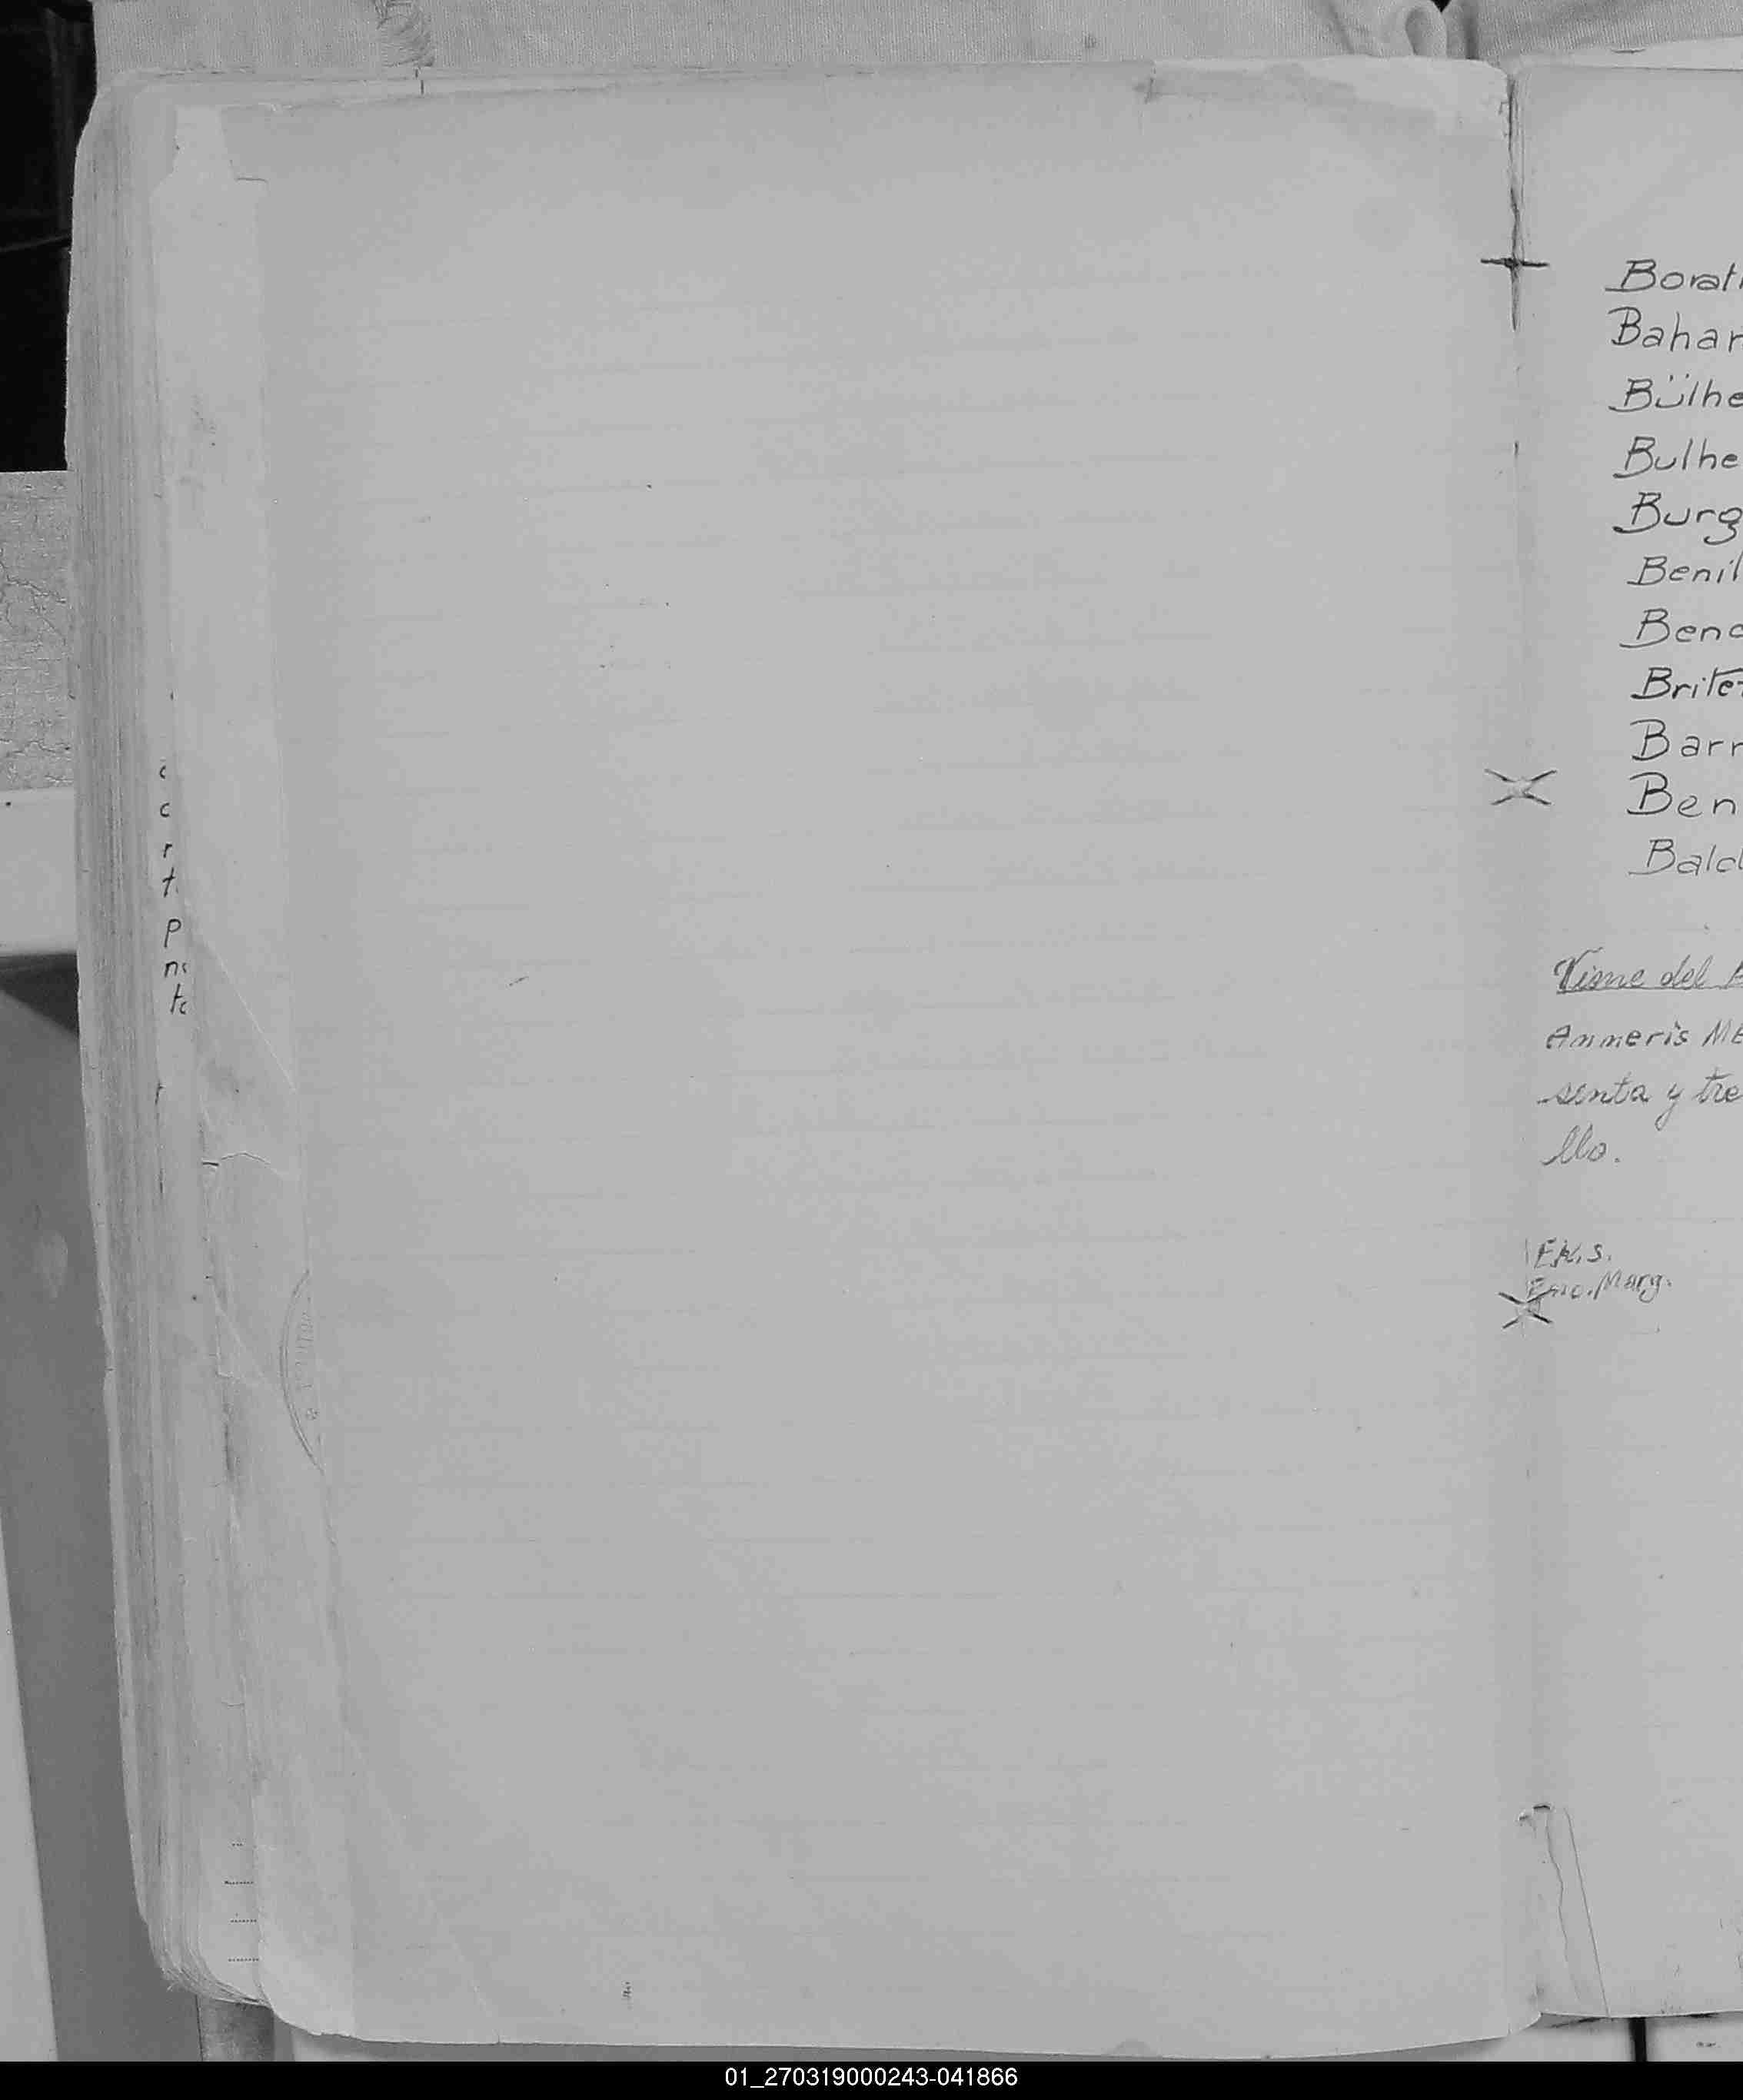 c
c
r
t
P
n
tc
Borat
Bahar
Bülhe
Bulhe
Burg
Benil
Ben
Brite
Barr
Ben
Balc
Vime del
Anneris ME
senta y tre
llo.
Marg.
01_270319000243-041866